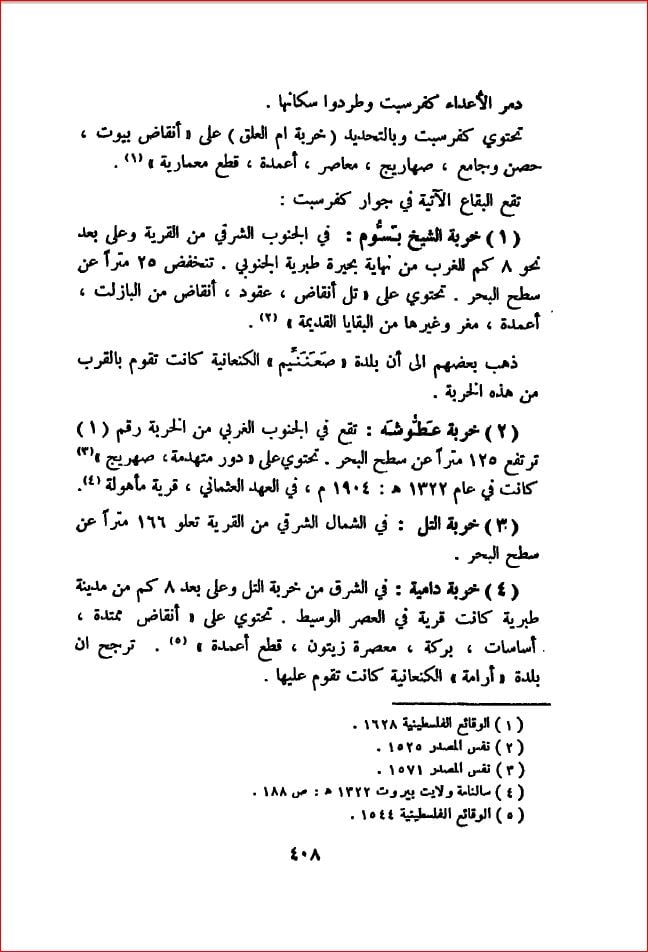 دمر الأعداء كفرسبت وطردوا سكانها .
تحتوي كفرسبت وبالتحديد ( خربة ام العلق ) على « أنقاض بيوت ،
حصن وجامع ، صهاريج ، معاصر ، أعمدة ، قطع معمارية » (١) .
تقع البقاع الآتية في جوار كفرسبت :
( ١ ) خربة الشيخ بَسُّوم : في الجنوب الشرقي من القرية وعلى بعد
نحو ٨ كم للغرب من نهاية بحيرة طبرية الجنوبي . تنخفض ٢٥ متراً عن
سطح البحر . تحتوي على « تل أنقاض ، عقود ، أنقاض من البازلت ،
أعمدة ، مغر وغيرها من البقايا القديمة » (٢) .
ذهب بعضهم الى أن بلدة « صَعَنَنِّيم » الكنعانية كانت تقوم بالقرب
من هذه الخربة .
( ٢ ) خربة عَطّوشَه : تقع في الجنوب الغربي من الخربة رقم ( ١ )
ترتفع ١٢٥ متراً عن سطح البحر . تحتوي على « دور متهدمة، صهريج » (٣)
كانت في عام ١٣٢٢ هـ : ١٩٠٤ م ، في العهد العثماني ، قرية مأهولة (٤).
( ٣ ) خربة التل : في الشمال الشرقي من القرية تعلو ١٦٦ متراً عن
سطح البحر .
( ٤ ) خربة دامية : في الشرق من خربة التل وعلى بعد ٨ كم من مدينة
طبرية كانت قرية في العصر الوسيط . تحتوي على « أنقاض ممتدة ،
أساسات ، بركة ، معصرة زيتون ، قطع أعمدة » (٥) . ترجح ان
بلدة « أرامة » الكنعانية كانت تقوم عليها .
( ١ ) الوقائع الفلسطينية ١٦٢٨ .
( ٢ ) نفس المصدر ١٥٢٥ .
( ٣ ) نفس المصدر ١٥٧١ .
( ٤ ) سالنامة ولايت بيروت ١٣٢٢ هـ : ص ١٨٨ .
( ٥ ) الوقائع الفلسطينية ١٥٤٤ .
٤٠٨